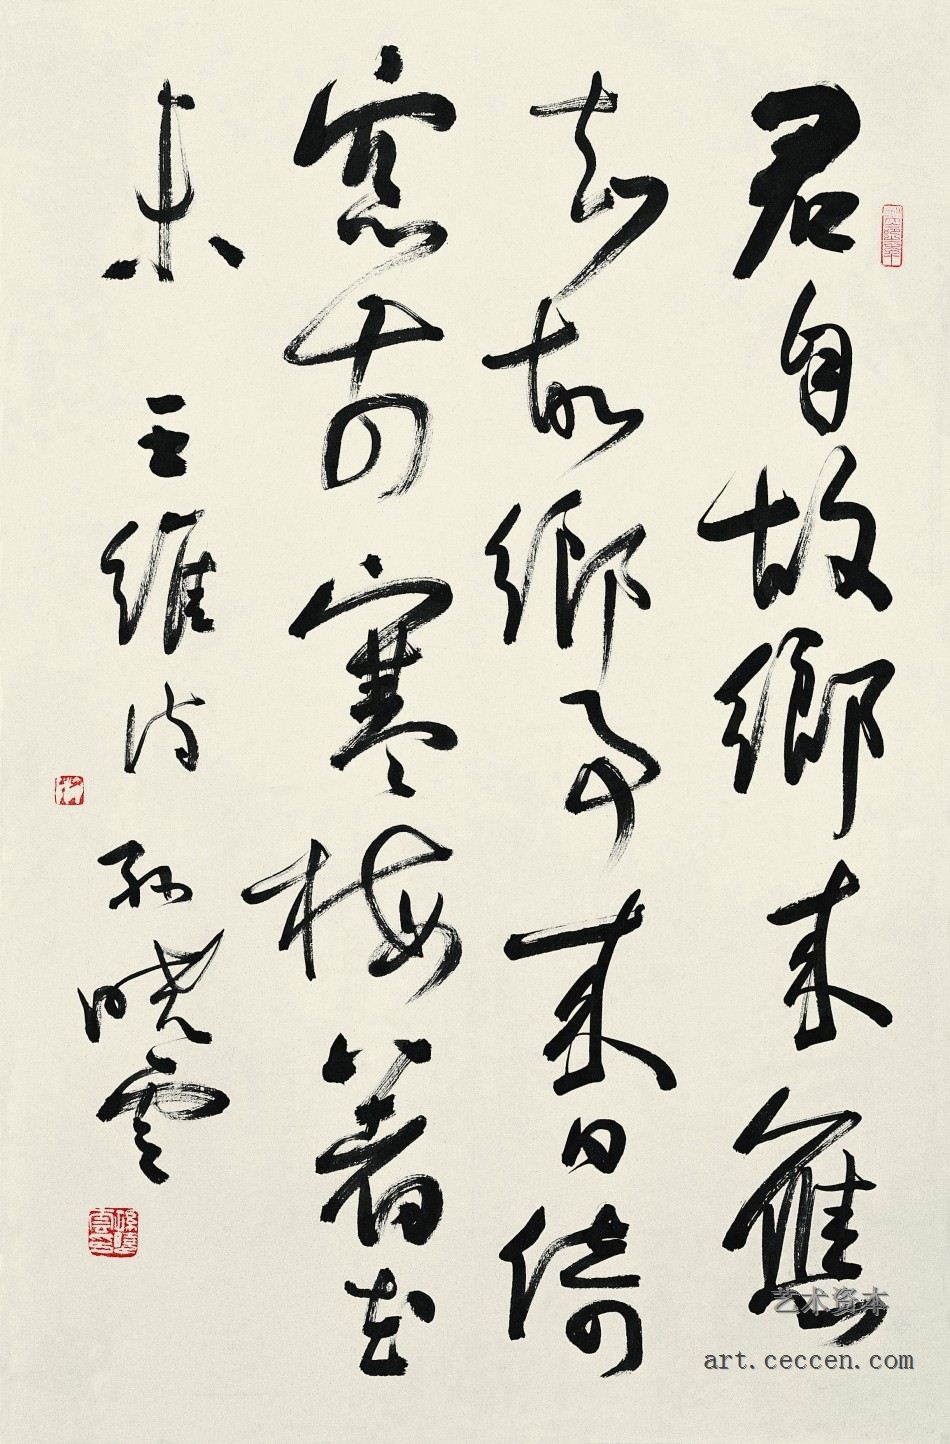 君自故鄉来應
知故鄉事来日綺
窓前寒梅著花
未 王維詩 孫曉雲
孫曉雲印
艺术资本
art.ceccen.com